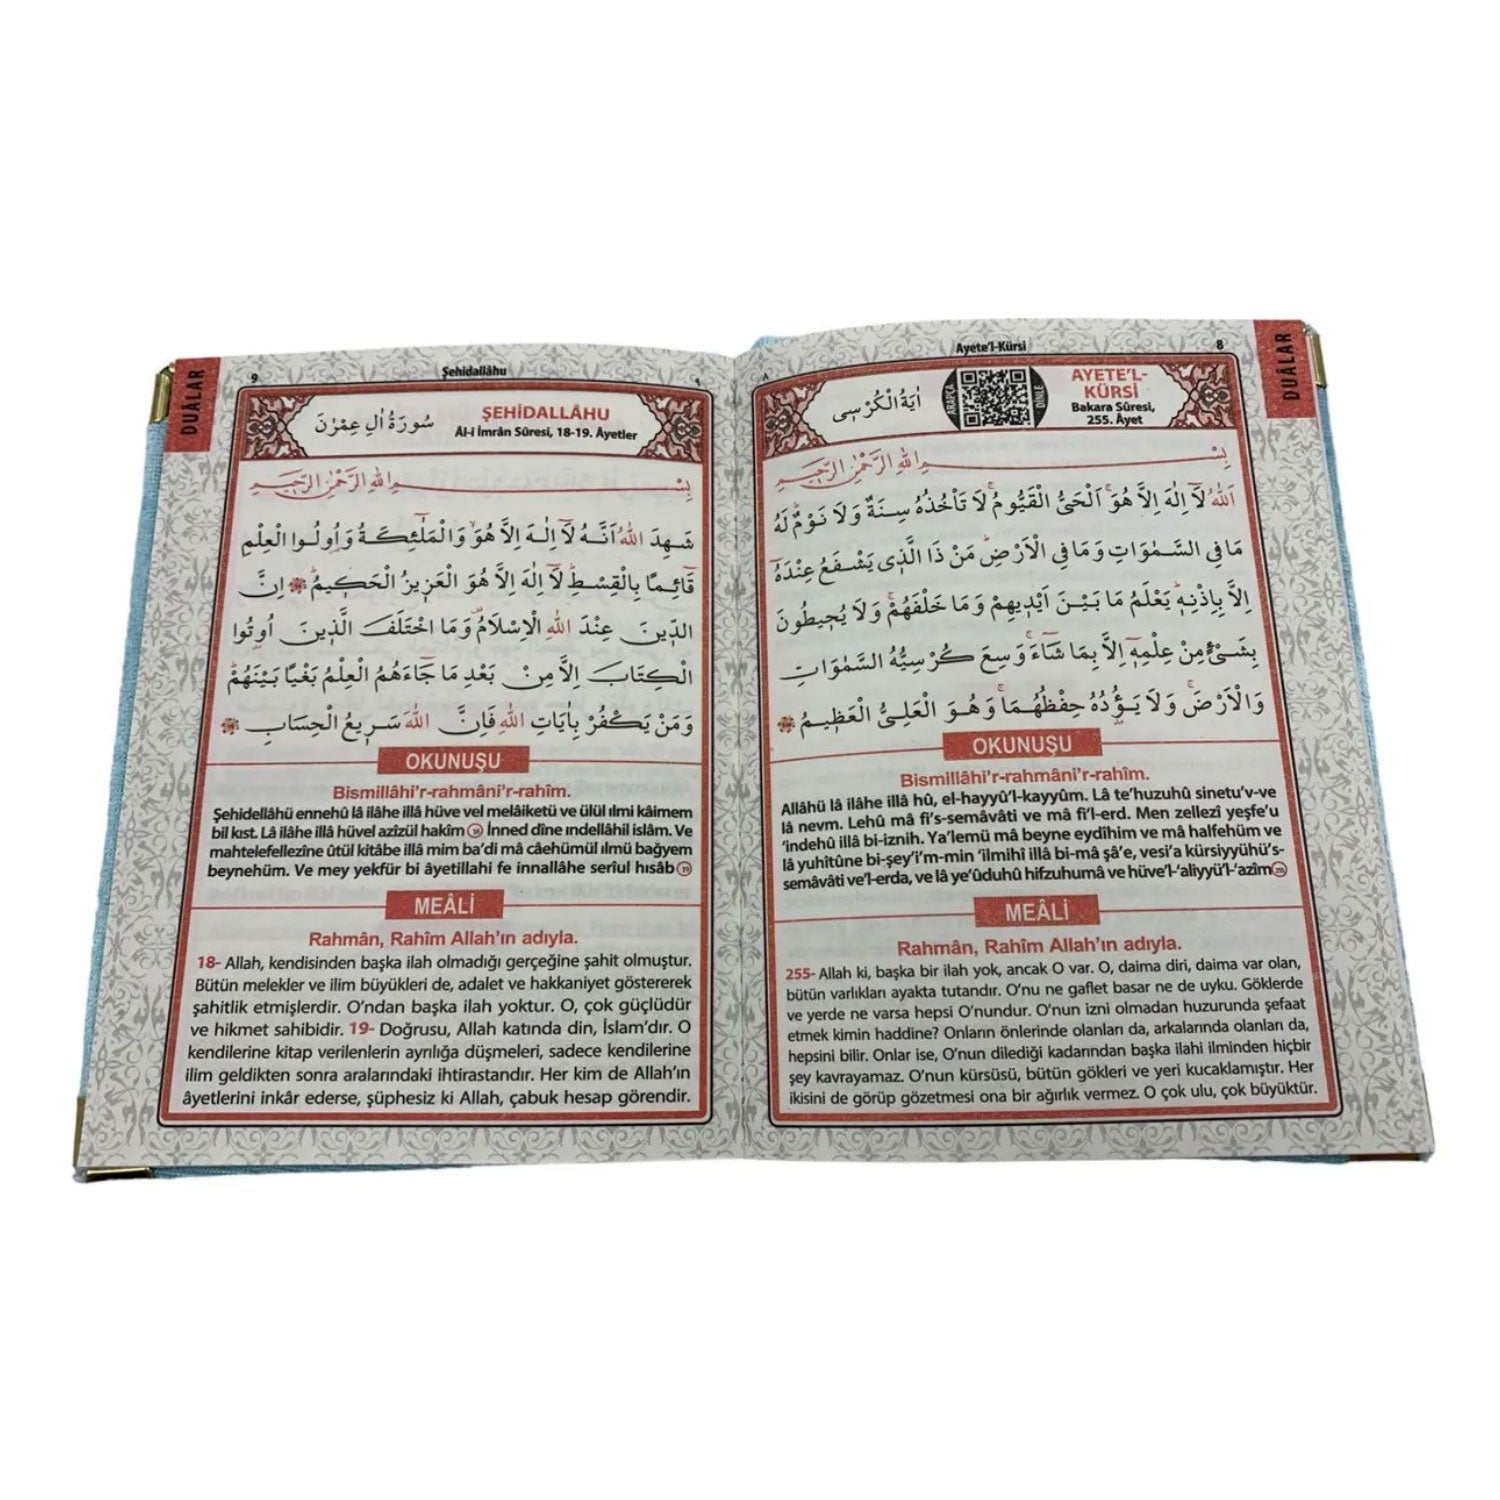 DUÂLAR
Ayete'l-Kürsi
8
٨
اٰيَةُ الْكُرْسِى
ARAPÇA
DİNLE
AYETE'L-
KÜRSİ
Bakara Sûresi,
255. Âyet
بِسْمِ اللّٰهِ الرَّحْمٰنِ الرَّحِيمِ
اَللّٰهُ لَا اِلٰهَ اِلَّا هُوَۚ اَلْحَىُّ الْقَيُّومُۚ لَا تَأْخُذُهُ سِنَةٌ وَلَا نَوْمٌۜ لَهُ
مَا فِى السَّمٰوَاتِ وَمَا فِى الْاَرْضِۜ مَنْ ذَا الَّذٖى يَشْفَعُ عِنْدَهُٓ
اِلَّا بِاِذْنِهٖۜ يَعْلَمُ مَا بَيْنَ اَيْدٖيهِمْ وَمَا خَلْفَهُمْۚ وَلَا يُحٖيطُونَ
بِشَىْءٍ مِنْ عِلْمِهٖٓ اِلَّا بِمَا شَٓاءَۚ وَسِعَ كُرْسِيُّهُ السَّمٰوَاتِ
وَالْاَرْضَۚ وَلَا يَؤُ۫دُهُ حِفْظُهُمَاۚ وَهُوَ الْعَلِىُّ الْعَظٖيمُ
OKUNUŞU
Bismillâhi'r-rahmâni'r-rahîm.
Allâhü lâ ilâhe illâ hû, el-hayyû'l-kayyûm. Lâ te'huzuhû sinetu'v-ve
lâ nevm. Lehû mâ fi's-semâvâti ve mâ fi'l-erd. Men zellezî yeşfe'u
'indehû illâ bi-iznih. Ya'lemü mâ beyne eydîhim ve mâ halfehüm ve
lâ yuhîtûne bi-şey'i'm-min 'ilmihî illâ bi-mâ şâ'e, vesi'a kürsiyyühü's-
semâvâti ve'l-erda, ve lâ ye'ûduhû hifzuhumâ ve hüve'l-'aliyyü'l-'azîm 255
MEÂLİ
Rahmân, Rahîm Allah'ın adıyla.
255- Allah ki, başka bir ilah yok, ancak O var. O, daima diri, daima var olan,
bütün varlıkları ayakta tutandır. O'nu ne gaflet basar ne de uyku. Göklerde
ve yerde ne varsa hepsi O'nundur. O'nun izni olmadan huzurunda şefaat
etmek kimin haddine? Onların önlerinde olanları da, arkalarında olanları da,
hepsini bilir. Onlar ise, O'nun dilediği kadarından başka ilahi ilminden hiçbir
şey kavrayamaz. O'nun kürsüsü, bütün gökleri ve yeri kucaklamıştır. Her
ikisini de görüp gözetmesi ona bir ağırlık vermez. O çok ulu, çok büyüktür.
DUÂLAR
9
Şehidallâhu
٩
سُورَةُ اٰلِ عِمْرٰنَ
ŞEHİDALLÂHU
Âl-i İmrân Sûresi, 18-19. Âyetler
بِسْمِ اللّٰهِ الرَّحْمٰنِ الرَّحِيمِ
شَهِدَ اللّٰهُ اَنَّهُ لَٓا اِلٰهَ اِلَّا هُوَۙ وَالْمَلٰٓئِكَةُ وَاُو۬لُوا الْعِلْمِ
قَٓائِمًا بِالْقِسْطِۜ لَٓا اِلٰهَ اِلَّا هُوَ الْعَزٖيزُ الْحَكٖيمُۜ اِنَّ
الدّٖينَ عِنْدَ اللّٰهِ الْاِسْلَامُ۠ وَمَا اخْتَلَفَ الَّذٖينَ اُو۫تُوا
الْكِتَابَ اِلَّا مِنْ بَعْدِ مَا جَٓاءَهُمُ الْعِلْمُ بَغْيًا بَيْنَهُمْۜ
وَمَنْ يَكْفُرْ بِاٰيَاتِ اللّٰهِ فَاِنَّ اللّٰهَ سَرٖيعُ الْحِسَابِ
OKUNUŞU
Bismillâhi'r-rahmâni'r-rahîm.
Şehidellâhü ennehû lâ ilâhe illâ hüve vel melâiketü ve ülül ılmi kâimem
bil kıst. Lâ ilâhe illâ hüvel azîzül hakîm 18 İnned dîne ındellâhil islâm. Ve
mahtelefellezîne ûtül kitâbe illâ mim ba'di mâ câehümül ılmü bağyem
beynehüm. Ve mey yekfür bi âyetillahi fe innallâhe serîul hısâb 19
MEÂLİ
Rahmân, Rahîm Allah'ın adıyla.
18- Allah, kendisinden başka ilah olmadığı gerçeğine şahit olmuştur.
Bütün melekler ve ilim büyükleri de, adalet ve hakkaniyet göstererek
şahitlik etmişlerdir. O'ndan başka ilah yoktur. O, çok güçlüdür
ve hikmet sahibidir. 19- Doğrusu, Allah katında din, İslam'dır. O
kendilerine kitap verilenlerin ayrılığa düşmeleri, sadece kendilerine
ilim geldikten sonra aralarındaki ihtirastandır. Her kim de Allah'ın
âyetlerini inkâr ederse, şüphesiz ki Allah, çabuk hesap görendir.